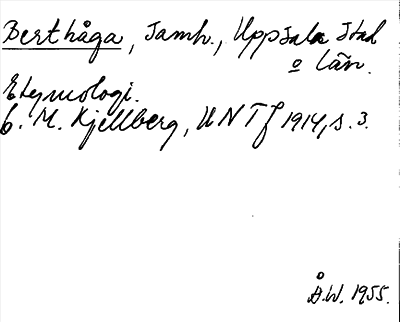 Berthåga, Samh., Uppsala Stad
o län.
Etymologi.
C. M. Kjellberg, UNT f 1914, s. 3.
Å.W. 1955.